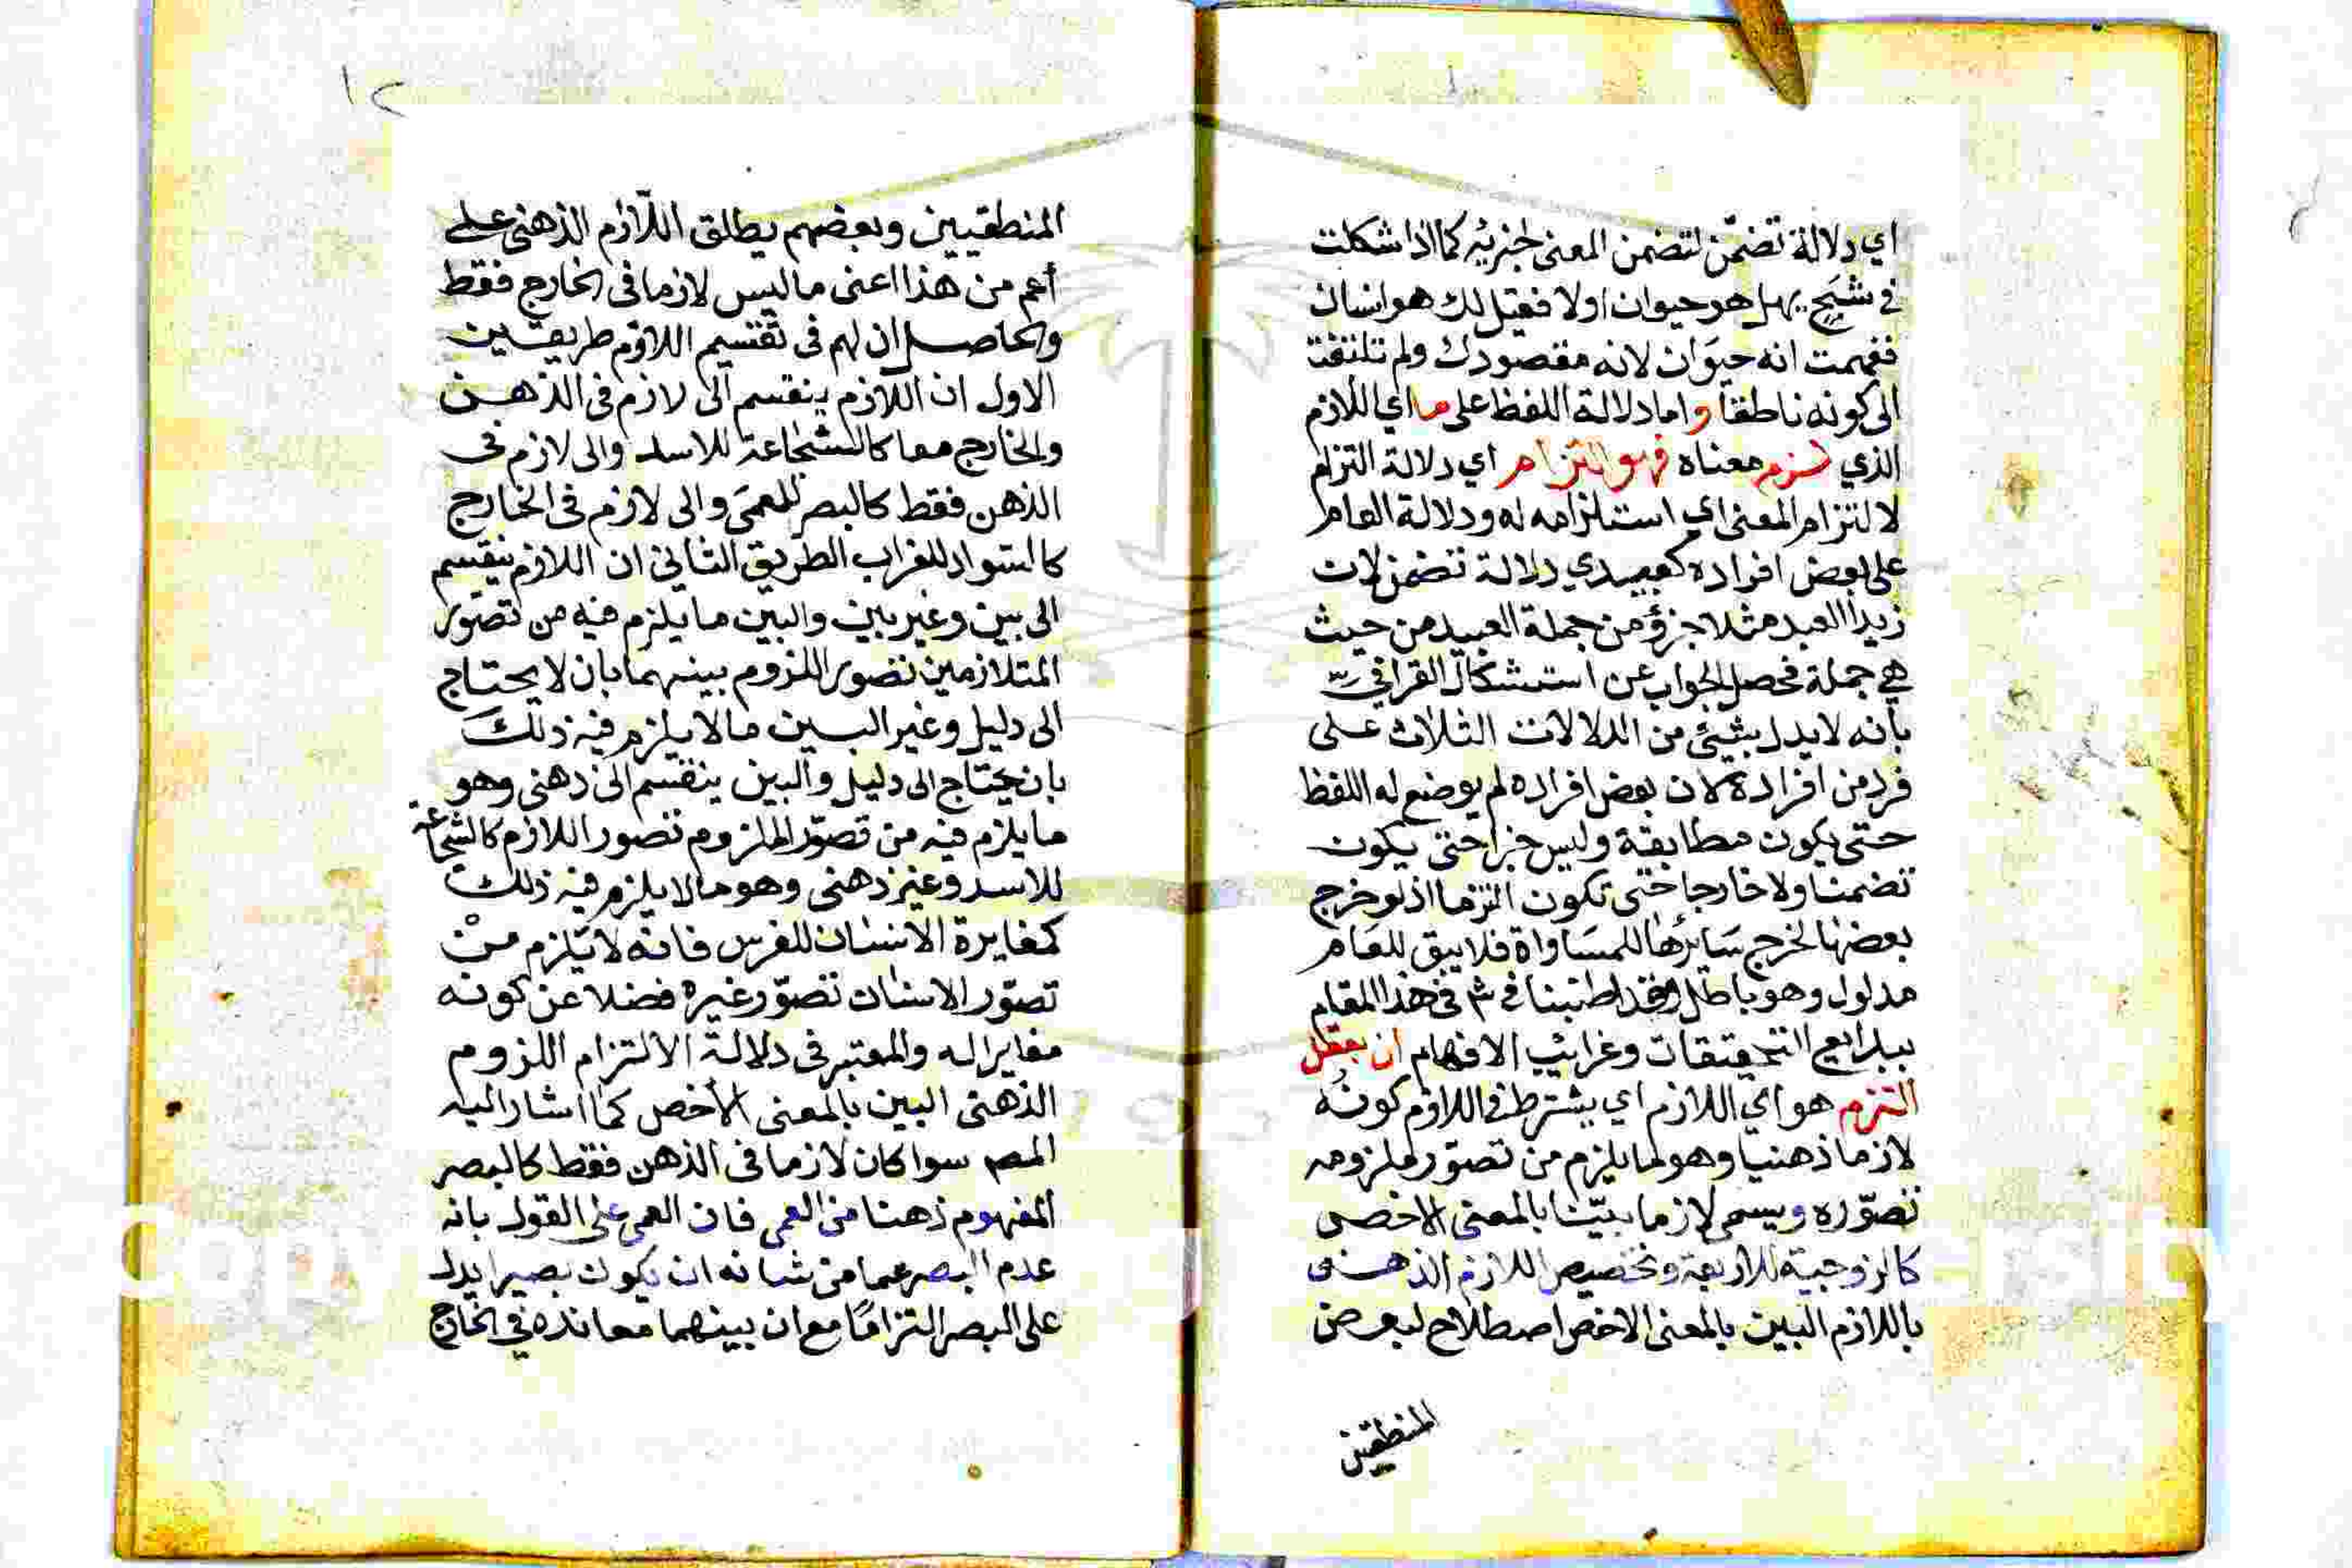 اي دلالة تضمّن لتضمن المعنى لجزئيه كما اذا شكلت
في شبَحٍ بهل هو حيوان اولا فقيل لك هو انسان
ففهمت انه حيوَان لانه مقصودك ولم تلتفت
الى كونه ناطقاً واما دلالة اللفظ على ما اي اللازم
الذي لزم معناه فهو التزام اي دلالة التزام
لالتزام المعنى اي استلزامه له ودلالة العام
على بعض افراده كعبيدي دلالة تضمن لان
زيدا العبد مثلا جزؤ من جملة العبيد من حيث
هي جملة فحصل الجواب عن استشكال القرافي
بانه لا يدل بشيئ من الدلالات الثلاث على
فرد من افراده لان بعض افراده لم يوضع له اللفظ
حتى يكون مطابقة وليس جزا حتى يكون
تضمنا ولا خارجا حتى تكون التزما اذ لو خرج
بعضها لخرج سَائرُها للمسَاواة فلا يبق للعَام
مدلول وهو باطل وقد اطنبنا في ش في هذا المقام
ببدايع التحقيقات وغرايب الافهام ان بعقل
التزم هو اي اللازم اي يشترط في اللازم كونُه
لازما ذهنيا وهو ما يلزم من تصوّر ملزومه
تصوّره ويسمى لازما بيّنا بالمعنى الاخص
كالزوجية للاربعة وتخصيص اللازم الذهني
باللازم البين بالمعنى الاخص اصطلاح لبعض
المنطقيين
١٢
المنطقيين وبعضهم يطلق اللّازم الذهني على
أعم من هذا اعنى ما ليس لازما فى الخارج فقط
والحاصل ان لهم فى تقسيم اللازم طريقين
الاول ان اللازم ينقسم الى لازم فى الذهن
والخارج معا كالشجاعة للاسد والى لازم فى
الذهن فقط كالبصر للعمَى والى لازم فى الخارج
كالسواد للغراب الطريق الثاني ان اللازم ينقسم
الى بين وغير بين والبين ما يلزم فيه من تصوّر
المتلازمين تصور اللزوم بينهما بان لا يحتاج
الى دليل وغير البين ما لا يلزم فيه ذلكَ
بان يحتاج الى دليل والبين ينقسم الى ذهنى وهو
ما يلزم فيه من تصوّر الملزوم تصور اللازم كالشجاعة
للاسد وغير ذهنى وهو ما لا يلزم فيه ذلك
كمغايرة الانسان للفرس فانه لا يلزم منْ
تصوّر الانسان تصوّر غيره فضلا عن كونه
مغايرا له والمعتبر فى دلالة الالتزام اللزوم
الذهنى البين بالمعنى الأخص كما اشار اليه
المصـ سوا كان لازما فى الذهن فقط كالبصر
المفهوم ذهنا من العمى فان العمى على القول بانه
عدم البصر عما من شانه ان يكون بصيرا يدل
على البصر التزامًا مع ان بينهما معانده في الخارج